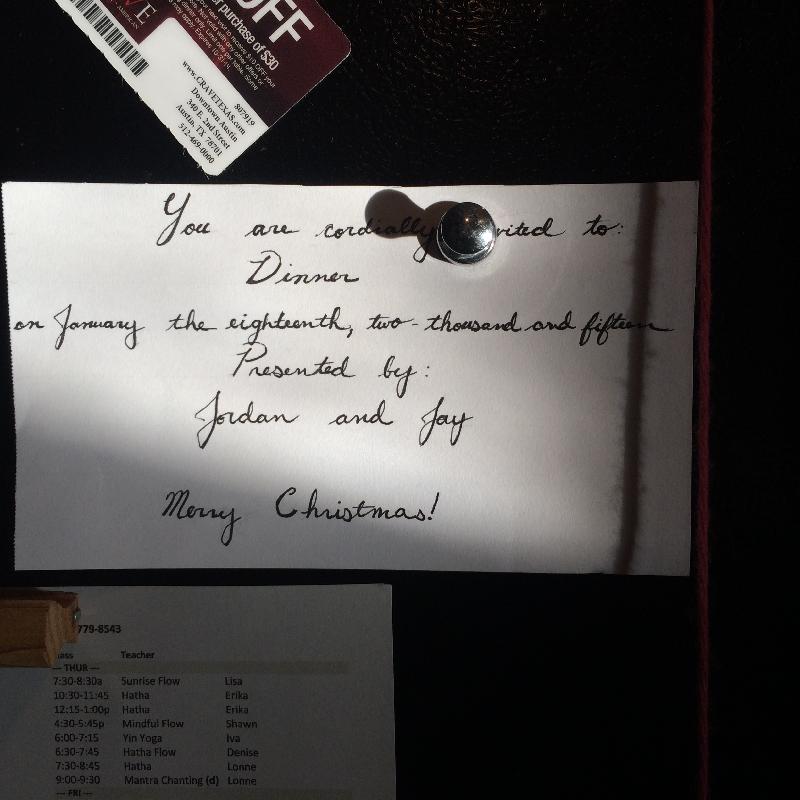 OFF
r purchase of $30
AMERICAN
807919
www.CRAVETEXAS.com
Downtown Austin
340 E. 2nd Street
Austin, TX 78701
512-469-0000
You are cordially vited to:
Dinner
on January the eighteenth, two-thousand and fifteen
Presented by:
Jordan and Jay
Merry Christmas!
779-8543
Teacher
--- THUR ---
7:30-8:30a Sunrise Flow Lisa
10:30-11:45 Hatha Erika
12:15-1:00p Hatha Erika
4:30-5:45p Mindful Flow Shawn
6:00-7:15 Yin Yoga Iva
6:30-7:45 Hatha Flow Denise
7:30-8:45 Hatha Lonne
9:00-9:30 Mantra Chanting (d) Lonne
--- FRI ---